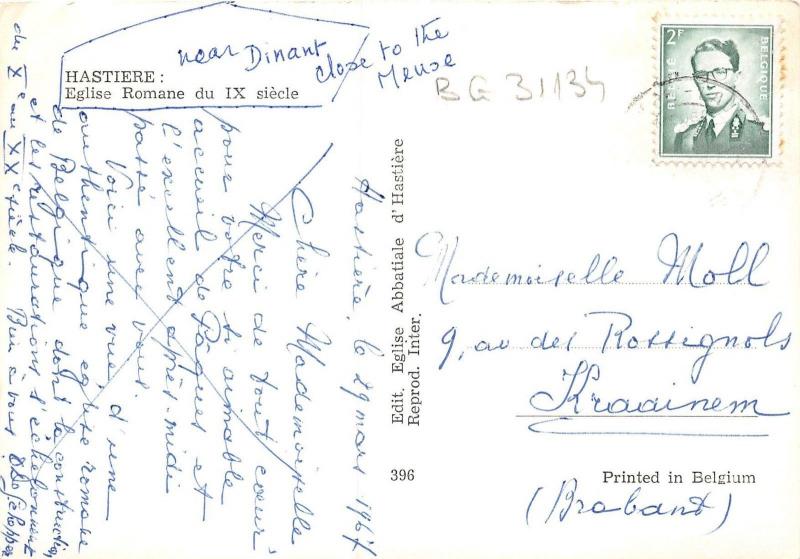 HASTIERE :
Eglise Romane du IX siècle
near Dinant
close to the
Meuse
BG 31134
2F
BELGIË
BELGIQUE
Hastière, le 29 mars 1967
Chère Mademoiselle
Merci de tout cœur
pour votre si aimable
accueil de Pâques et
l'excellent après-midi
passé avec vous.
Voici une vue d'une
authentique église romane
de Belgique dont la construction
et les restaurations s'échelonnent
du X e au XX e siècle. Bien à vous
Edit. Eglise Abbatiale d'Hastière
Reprod. Inter.
Mademoiselle Moll
9, av des Rossignols
Kraainem
(Brabant)
396
Printed in Belgium